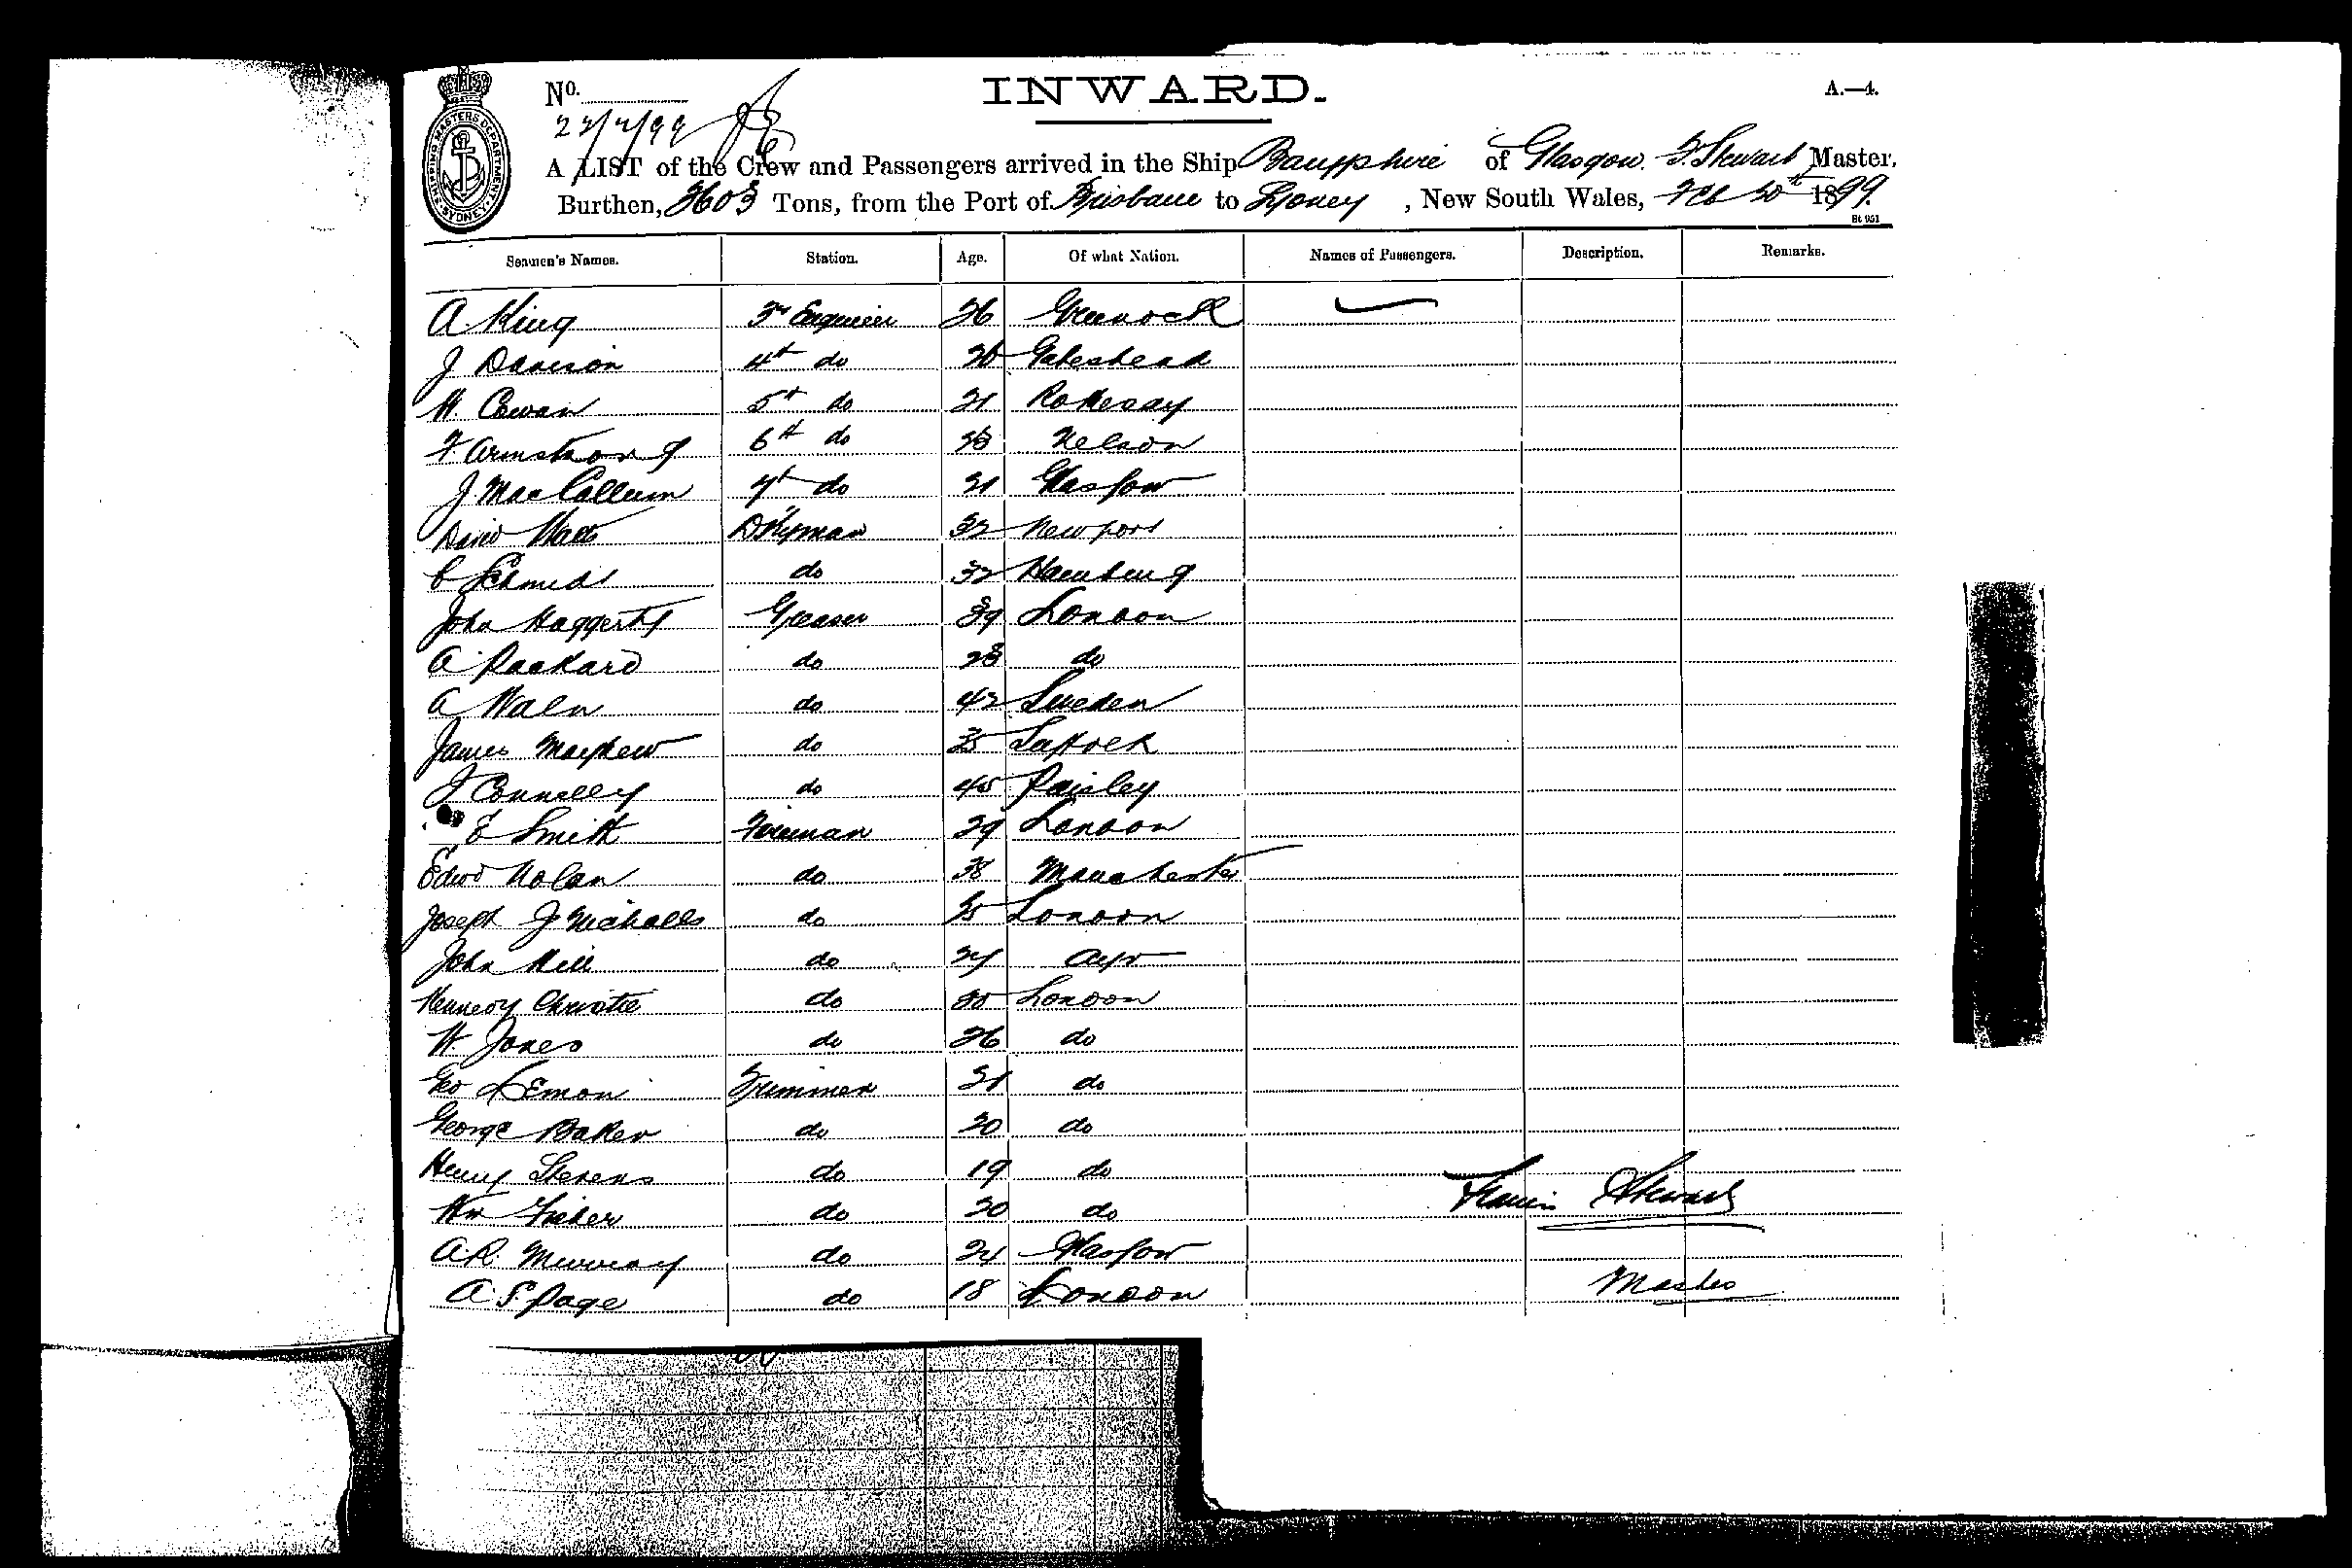 INWARD.
No.
A.—4.
22/2/99
SHIPPING MASTERS DEPARTMENT SYDNEY
A LIST of the Crew and Passengers arrived in the Ship Banffshire of Glasgow. F. Stewart Master,
Burthen, 3603 Tons, from the Port of Brisbane to Sydney, New South Wales, Feb 20th 1899.
Bt 951
Seamen's Names. Station. Age. Of what Nation. Names of Passengers. Description. Remarks.
A King 3rd Engineer 26 Greenock
J Davison 4th do 26 Gateshead
H. Cowan 5th do 21 Rothesay
F. Armstrong 6th do Nelson
J. MacCallum 7th do 21 Glasgow
David Watts Dkyman 32 Newport
C Schmidt do 32 Hamburg
John Haggerty Greaser 39 London
A. Packard do 28 do
A do 42 Sweden
James Mayhew do 35 Suffolk
J Connelly do 45 Paisley
E Smith Fireman 29 London
Edwd Nolan do 38 Manchester
Joseph J Nicholls do 25 London
John Hill do 27 Ayr
Kennedy Christie do London
W. Jones do 26 do
Geo Lemon Trimmer 21 do
George Baker do 20 do
Henry Stevens do 19 do
Wm Fisher do 20 do
Francis Stewart
A.R. Murray do 24 Glasgow
A. S. Page do 18 London
Master